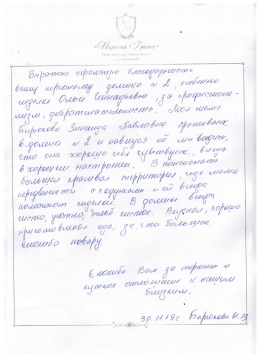 Выражаю огромную благодарность
всему персоналу домика № 2, особенно
сиделке Ольге Геннадьевне за профессиона-
лизм, доброжелательность. Моя мама
Бирюкова Зинаида Павловна проживает
в домике № 2 и навещая её мы видим,
что она хорошо себя чувствует, всегда
в хорошем настроении. В пансионате
большая красивая территория, где мама
с ходунками и ей всегда
помогают сиделки. В домике всегда
чисто, уютно, белье чистое. Вкусная, хорошо
приготовленная еда, за что большое
спасибо повару.
Спасибо Вам за терпение и
чуткое отношение к нашим
близким.
30.11.19г. Бирюкова И.В.